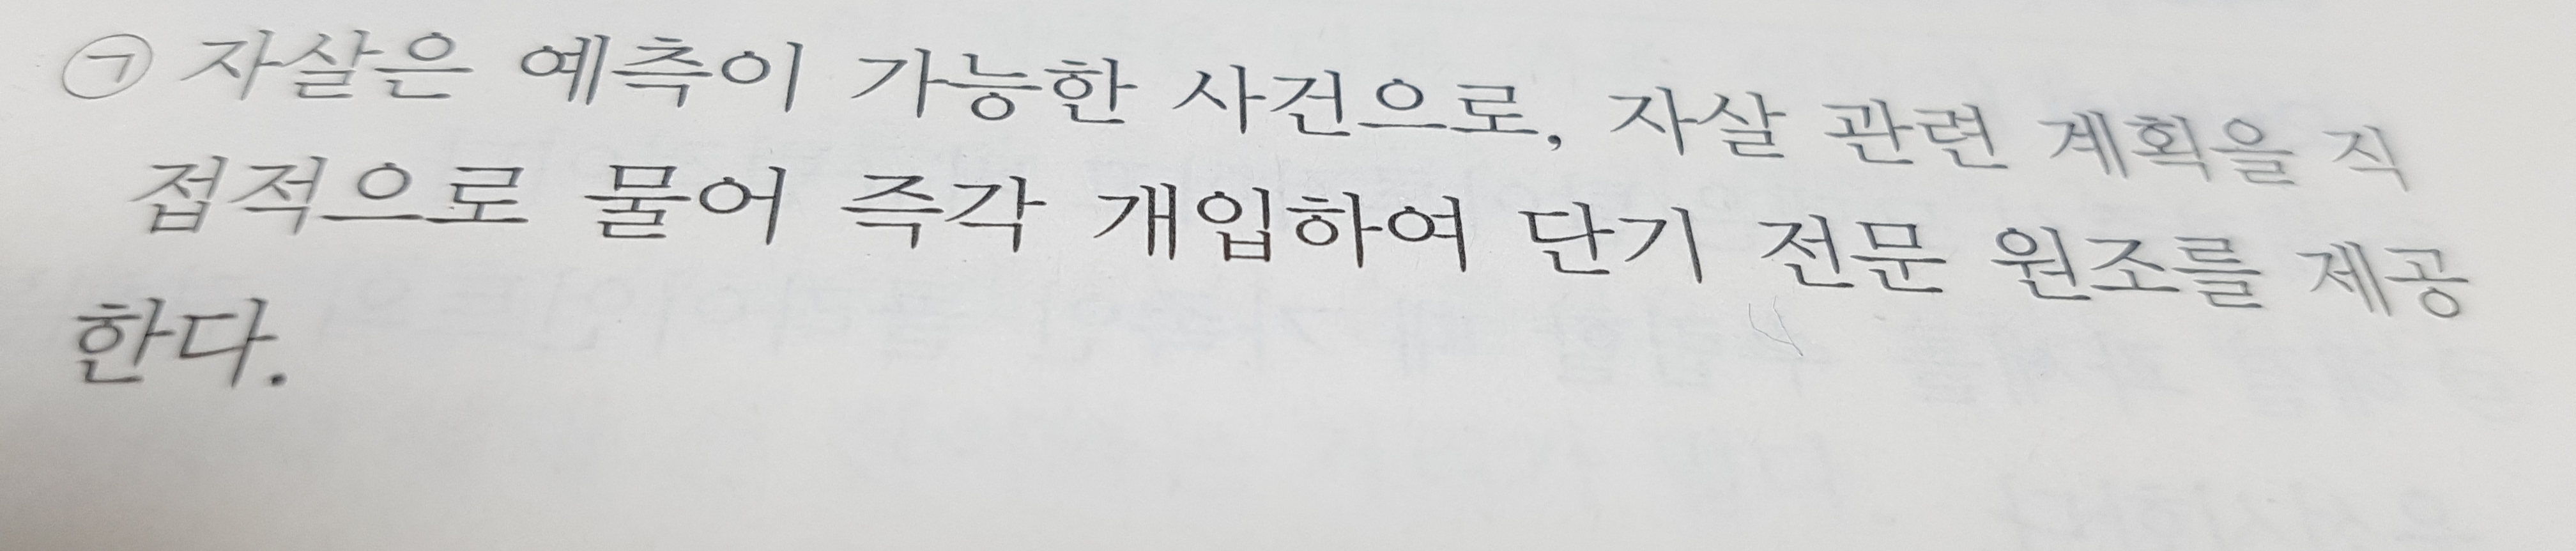 ㉠ 자살은 예측이 가능한 사건으로, 자살 관련 계획을 직
접적으로 물어 즉각 개입하여 단기 전문 원조를 제공
한다.